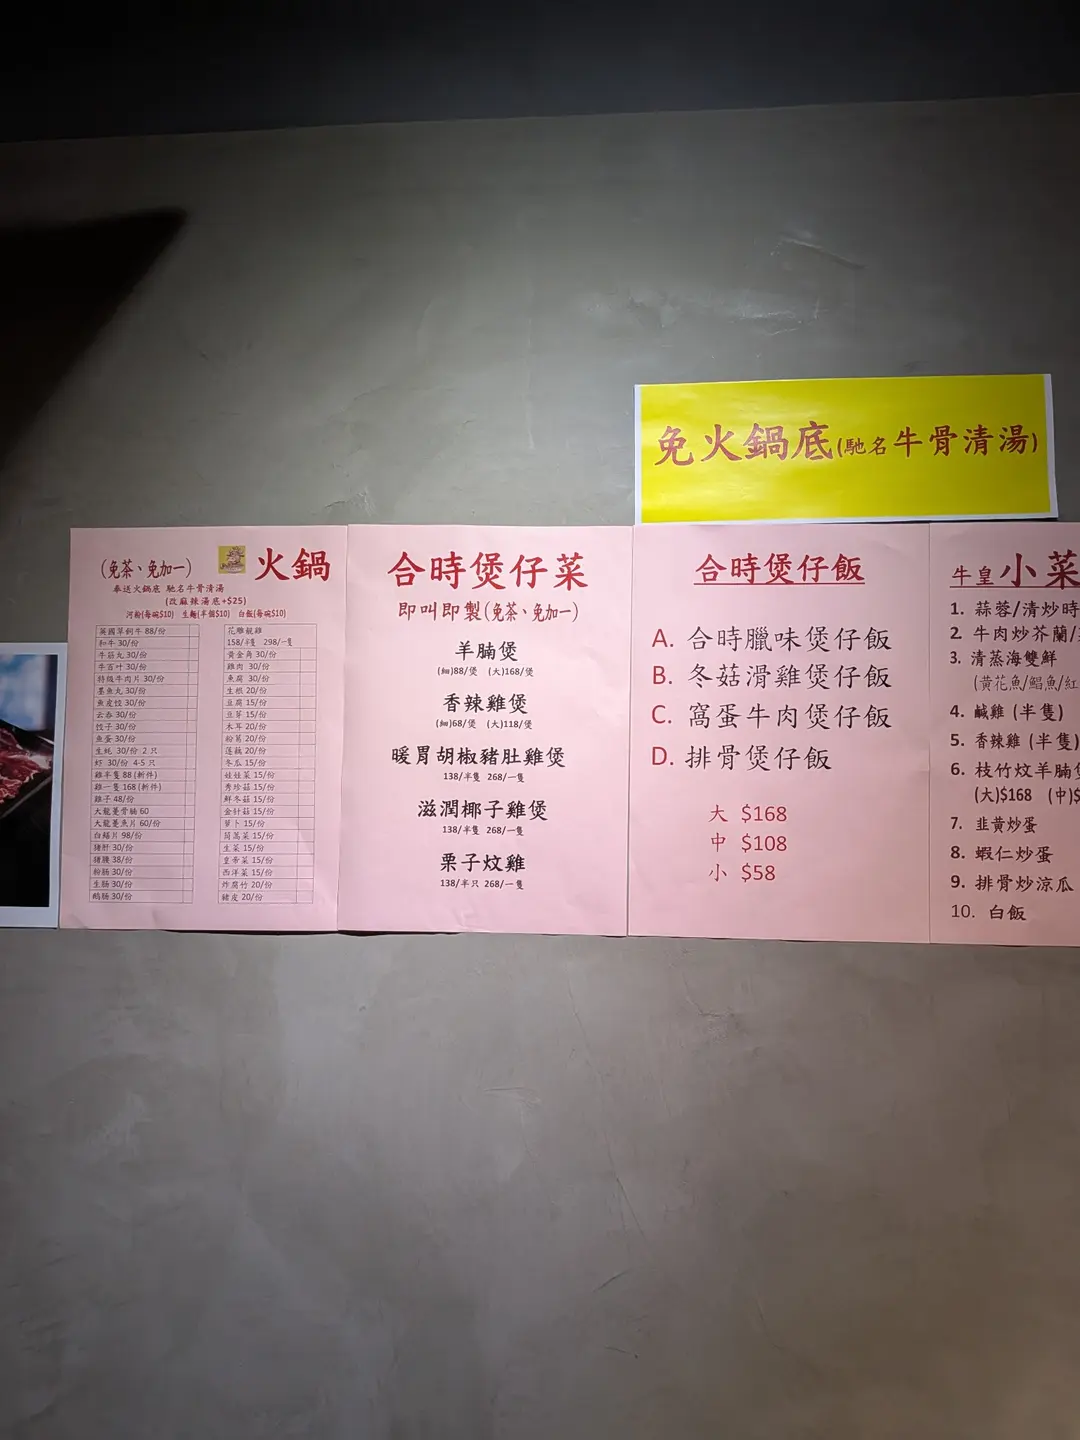 免火鍋底(馳名牛骨清湯)
(免茶、免加一) 火鍋
奉送火鍋底 馳名牛骨清湯
(改麻辣湯底+$25)
河粉(每碗$10) 生麵(半個$10) 白飯(每碗$10)
英國草飼牛 88/份
和牛 30/份
牛筋丸 30/份
牛百叶 30/份
特级牛肉片 30/份
墨魚丸 30/份
魚皮饺 30/份
云吞 30/份
饺子 30/份
魚蛋 30/份
生蚝 30/份 2 只
虾 30/份 4-5 只
雞半隻 88 (斬件)
雞一隻 168 (斬件)
雞子 48/份
大龍躉骨腩 60
大龍躉魚片 60/份
白鱔片 98/份
猪肝 30/份
猪腰 38/份
粉肠 30/份
生肠 30/份
鹅肠 30/份
花雕靚雞
158/半隻 298/一隻
黃金角 30/份
雞肉 30/份
魚腐 30/份
生根 20/份
豆腐 15/份
豆芽 15/份
木耳 20/份
粉葛 20/份
莲藕 20/份
冬瓜 15/份
娃娃菜 15/份
秀珍菇 15/份
鲜冬菇 15/份
金针菇 15/份
萝卜 15/份
茼蒿菜 15/份
生菜 15/份
皇帝菜 15/份
西洋菜 15/份
炸腐竹 20/份
豬皮 20/份
合時煲仔菜
即叫即製(免茶、免加一)
羊腩煲
(細)88/煲 (大)168/煲
香辣雞煲
(細)68/煲 (大)118/煲
暖胃胡椒豬肚雞煲
138/半隻 268/一隻
滋潤椰子雞煲
138/半隻 268/一隻
栗子炆雞
138/半只 268/一隻
合時煲仔飯
A. 合時臘味煲仔飯
B. 冬菇滑雞煲仔飯
C. 窩蛋牛肉煲仔飯
D. 排骨煲仔飯
大 $168
中 $108
小 $58
牛皇小菜
1. 蒜蓉/清炒時
2. 牛肉炒芥蘭/
3. 清蒸海雙鮮
(黃花魚/鯧魚/紅
4. 鹹雞 (半隻)
5. 香辣雞 (半隻)
6. 枝竹炆羊腩煲
(大)$168 (中)$
7. 韭黄炒蛋
8. 蝦仁炒蛋
9. 排骨炒涼瓜
10. 白飯